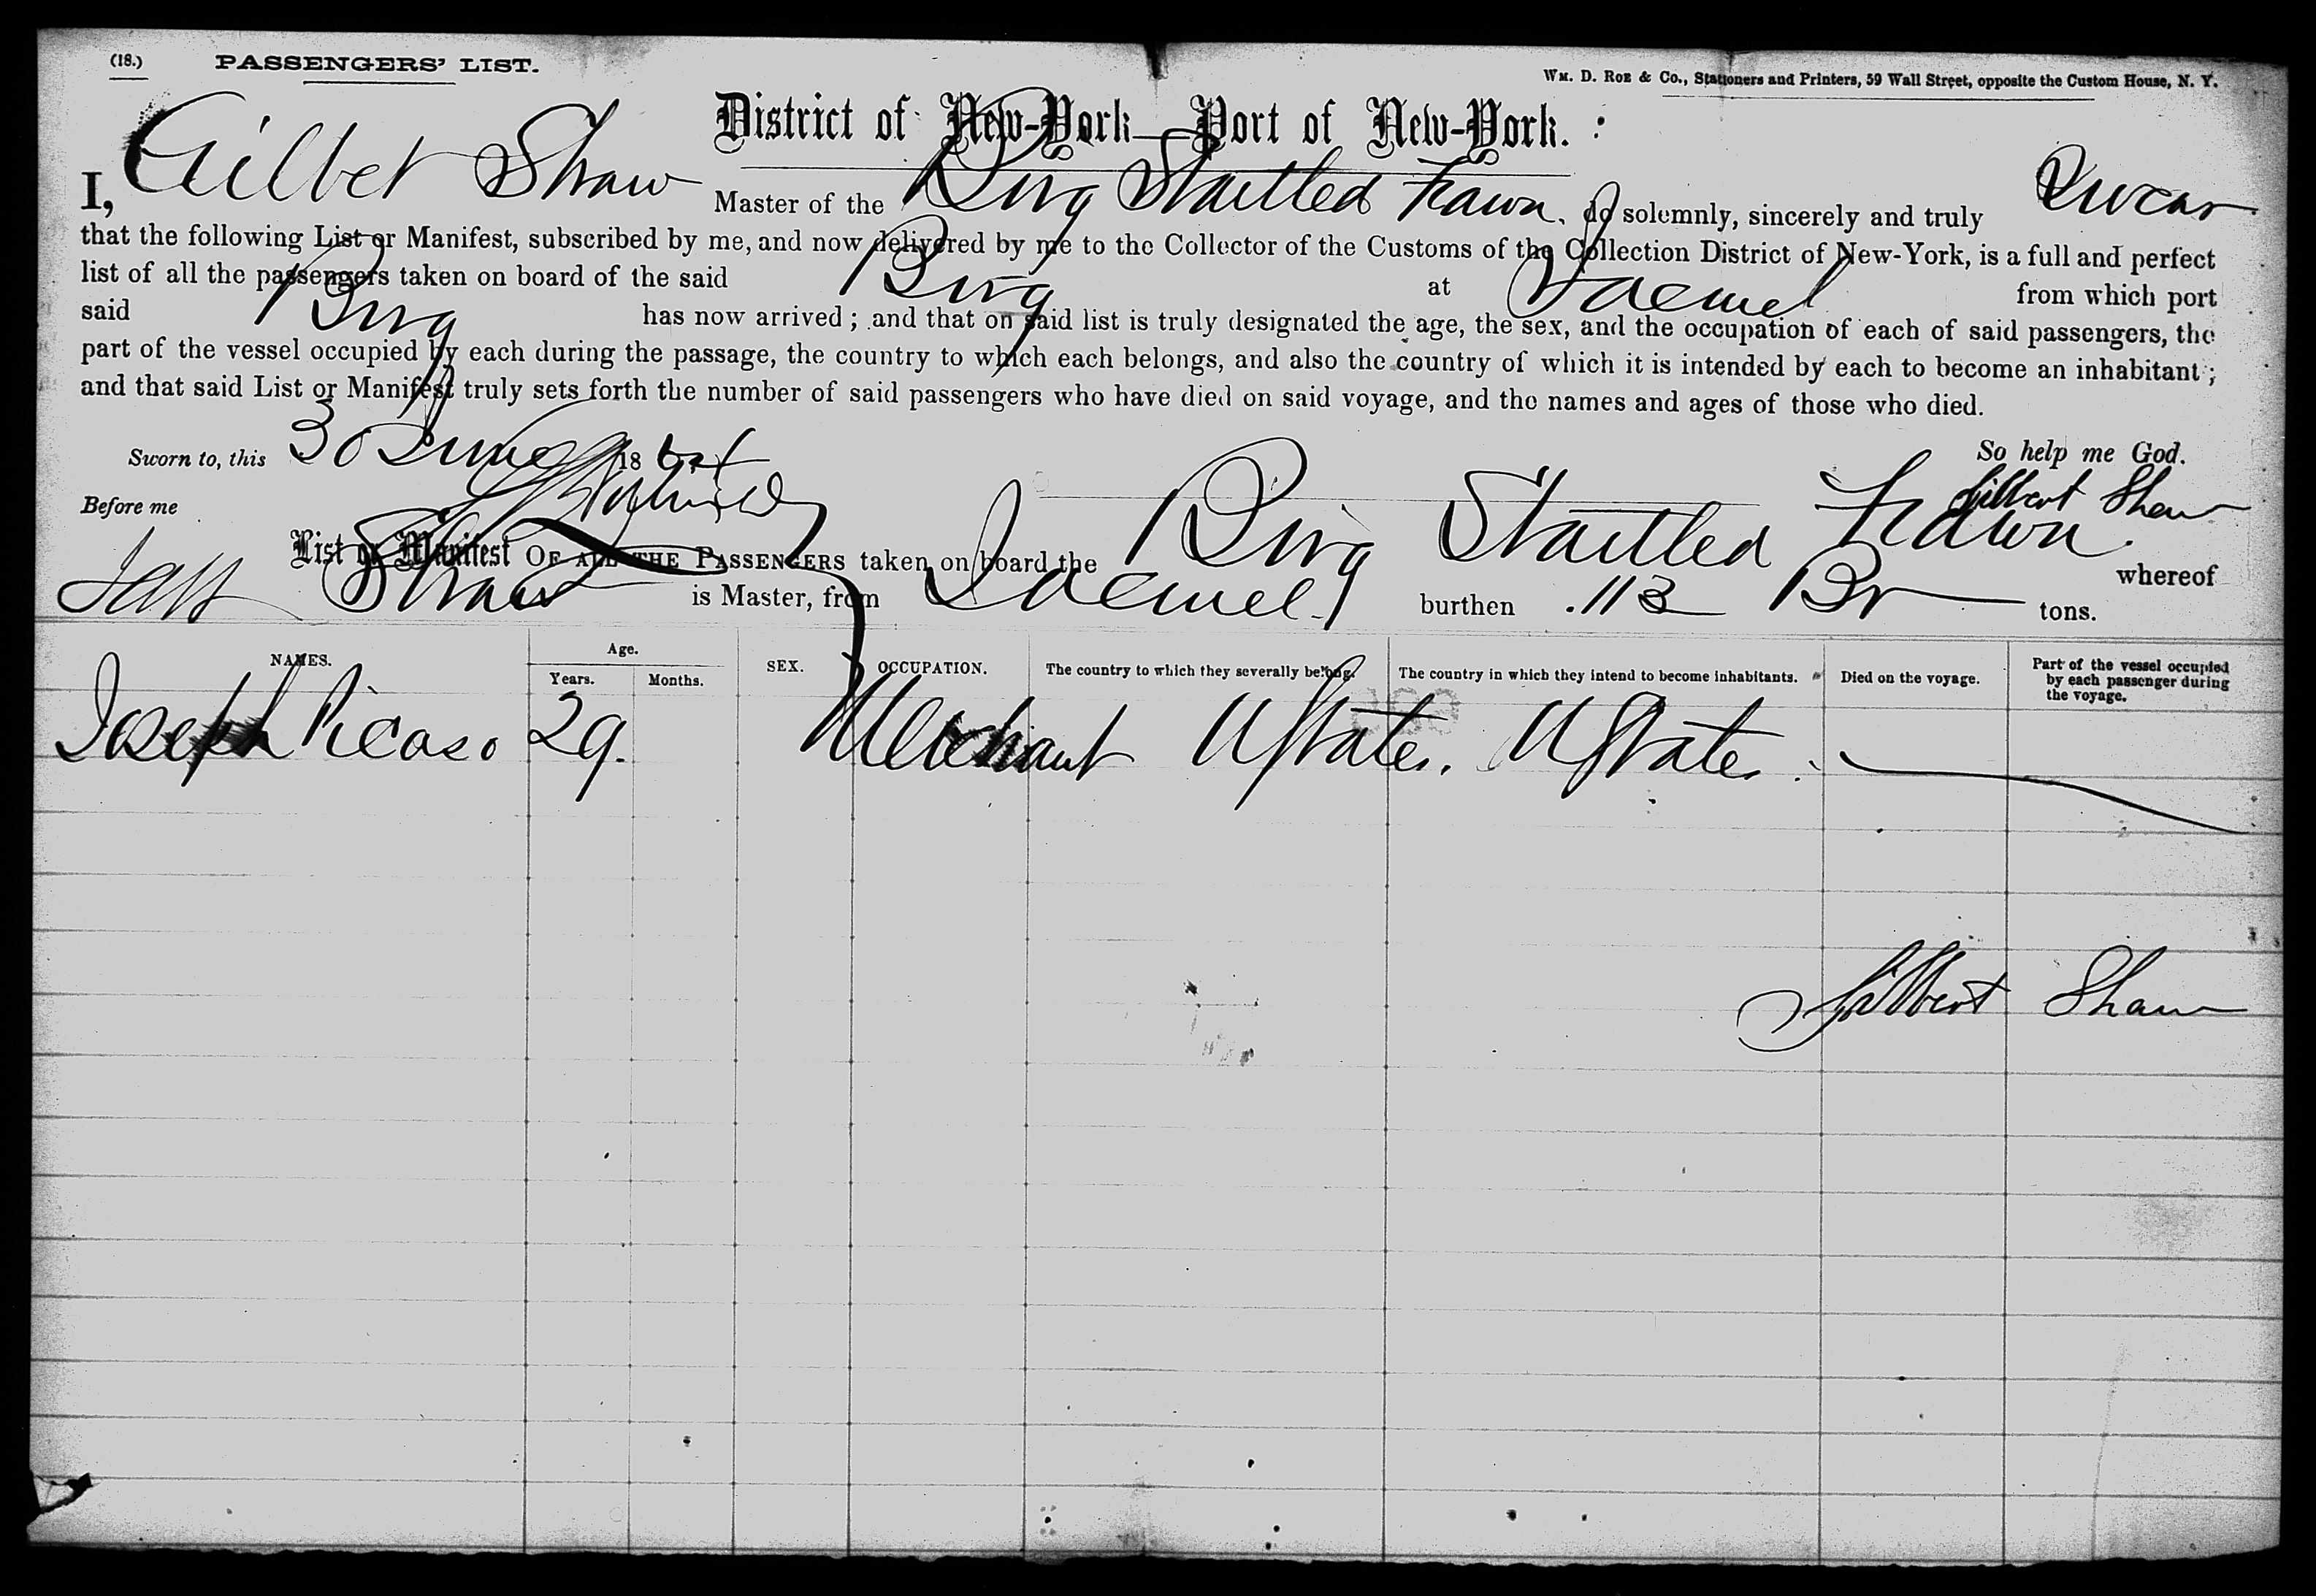 (18.) PASSENGERS' LIST.
WM. D. ROE & CO., Stationers and Printers, 59 Wall Street, opposite the Custom House, N. Y.
District of New-York—Port of New-York.
I, Gilbet Shaw Master of the Brig Startled Fawn. do solemnly, sincerely and truly Swear
that the following List or Manifest, subscribed by me, and now delivered by me to the Collector of the Customs of the Collection District of New-York, is a full and perfect
list of all the passengers taken on board of the said Brig at Jacmel from which port
said Brig has now arrived; and that on said list is truly designated the age, the sex, and the occupation of each of said passengers, the
part of the vessel occupied by each during the passage, the country to which each belongs, and also the country of which it is intended by each to become an inhabitant;
and that said List or Manifest truly sets forth the number of said passengers who have died on said voyage, and the names and ages of those who died.
Sworn to, this 30 June 18 So help me God.
Before me Gilbert Shaw
List or Manifest OF ALL THE PASSENGERS taken on board the Brig Startled Fawn. whereof
Shaw is Master, from Jacmel burthen 113 Br tons.
NAMES. Age. Years. Months. SEX. OCCUPATION. The country to which they severally belong. The country in which they intend to become inhabitants. Died on the voyage. Part of the vessel occupied by each passenger during the voyage.
Joseph Picaso 29. Merchant UStates. UStates.
Gilbert Shaw